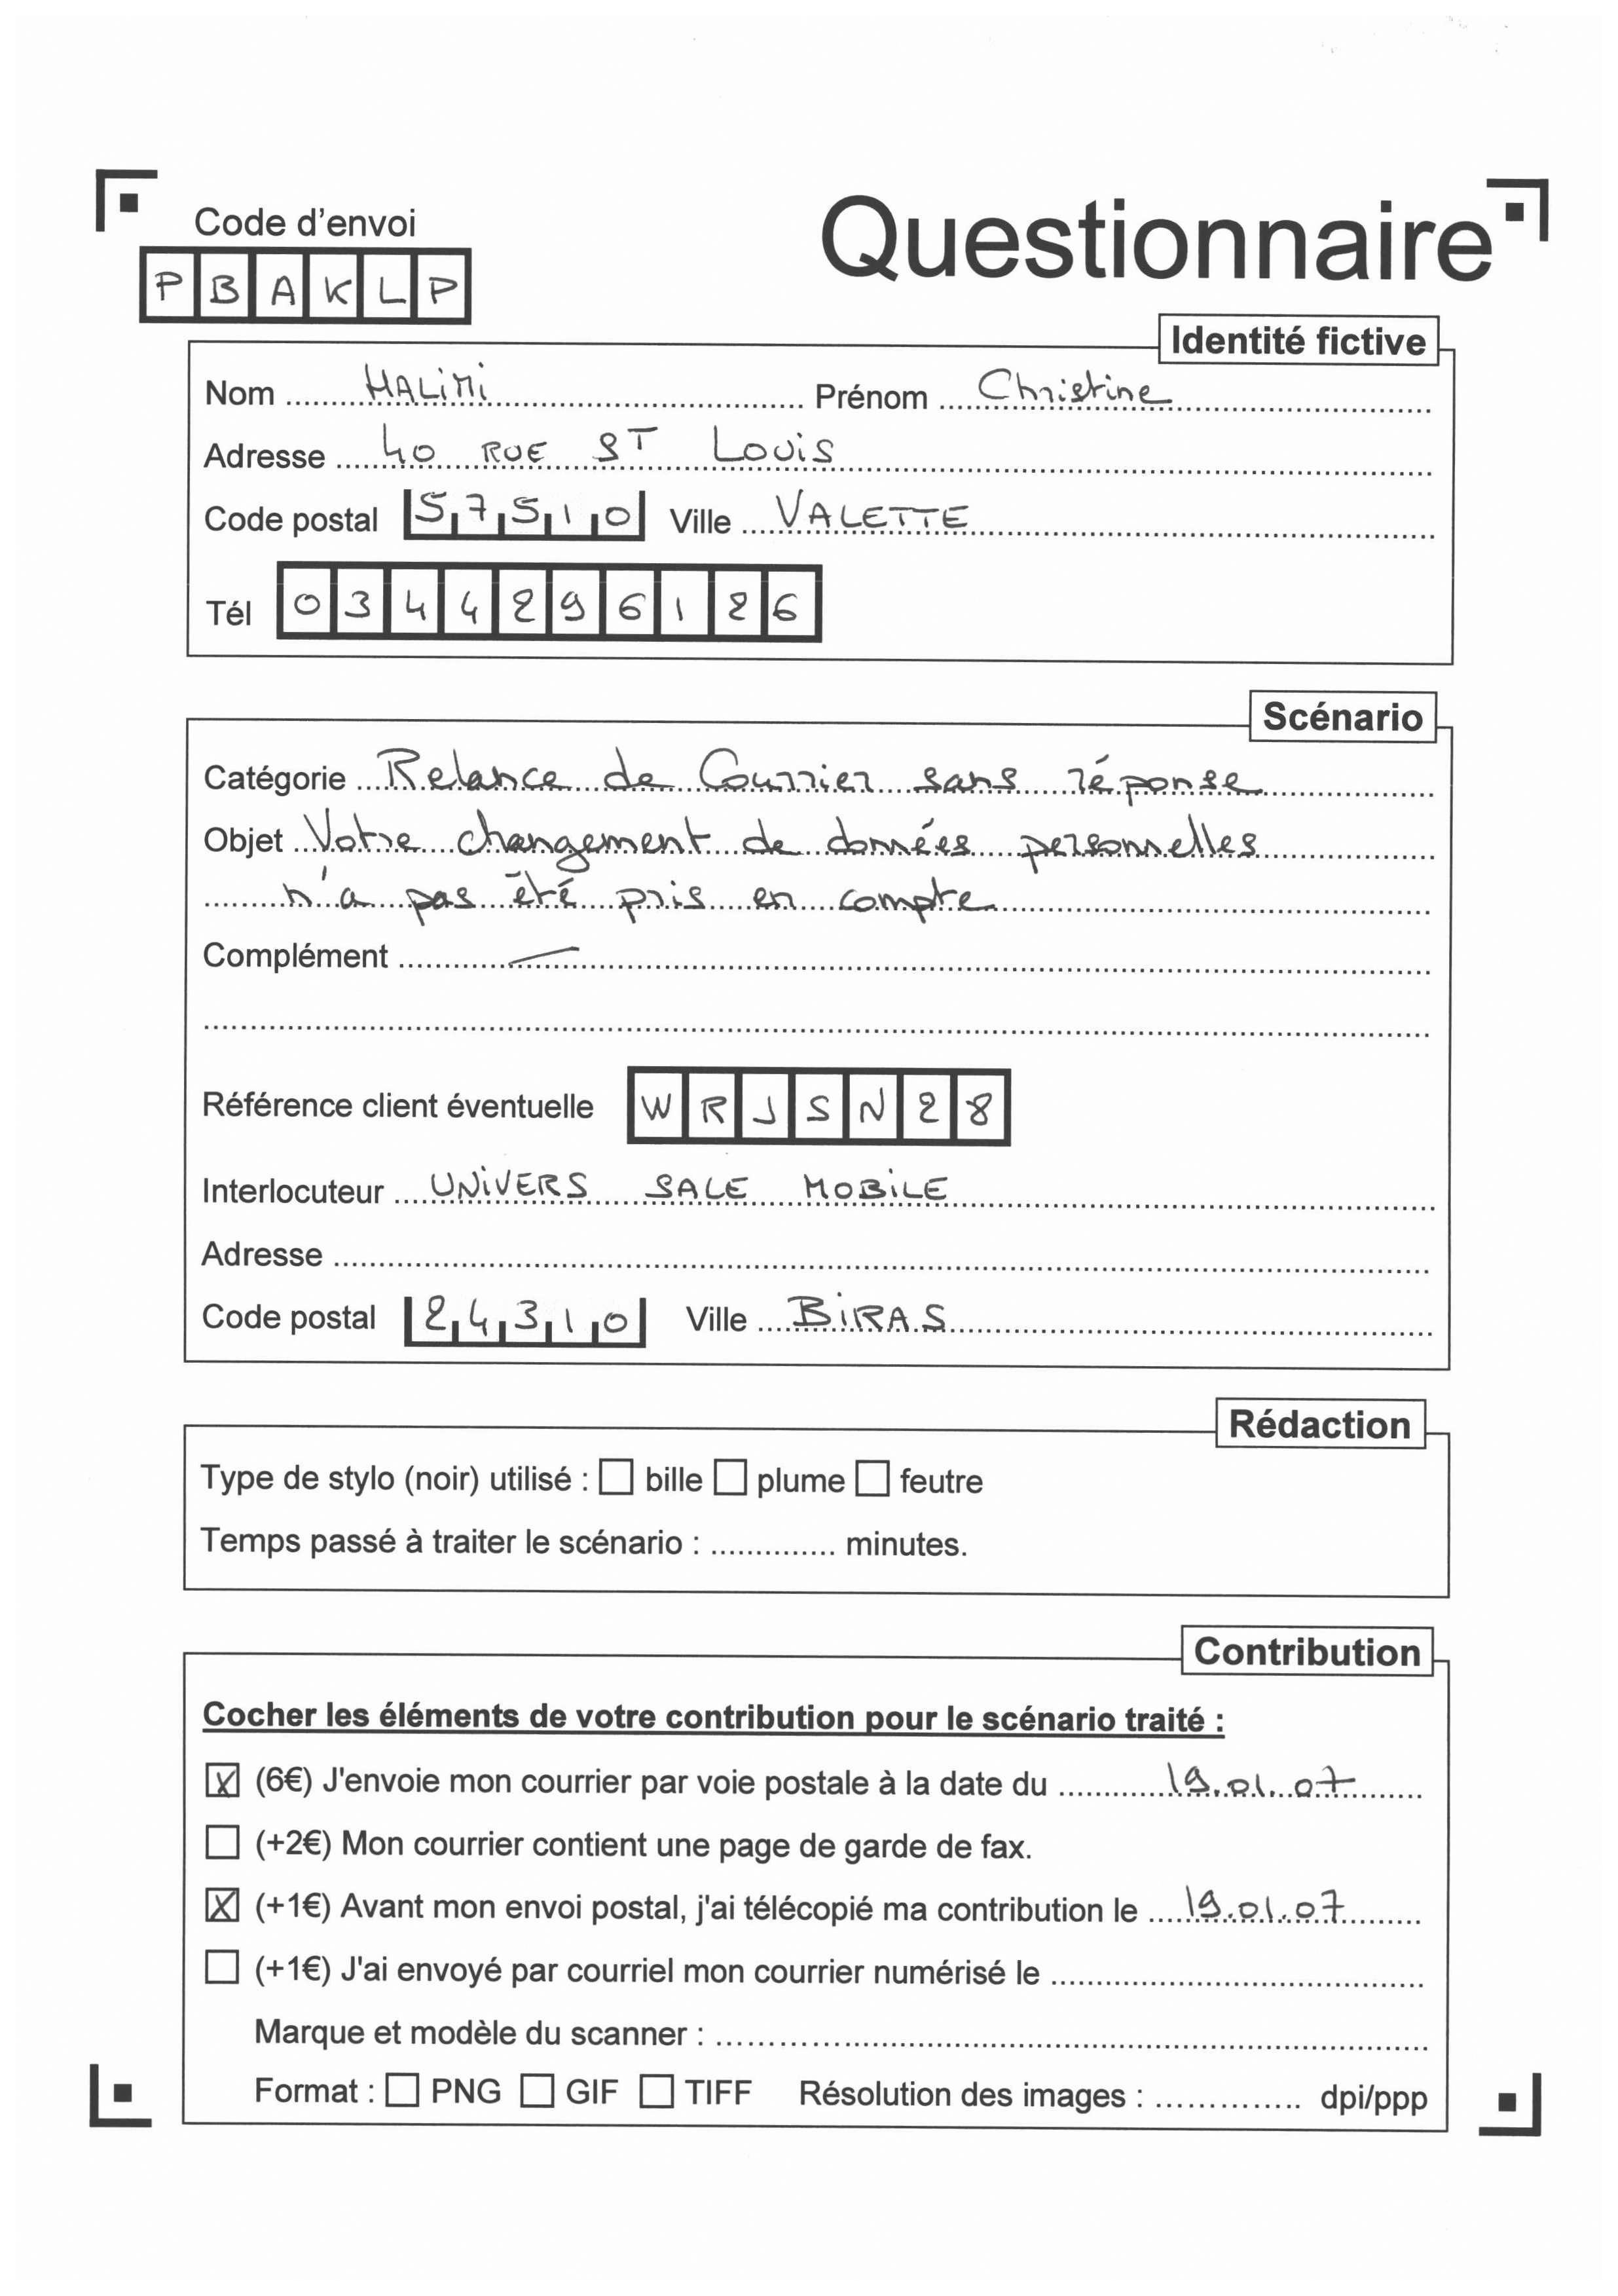 Code d'envoi
Questionnaire
PBAKLP
Identité fictive
Nom HALIMI Prénom Christine
Adresse 40 RUE ST Louis
Code postal 57510 Ville VALETTE
Tél 0344296126
Scénario
Catégorie Relance de Courrier sans réponse
Objet Votre changement de données personnelles
n'a pas été pris en compte
Complément —
Référence client éventuelle WRJSN28
Interlocuteur UNIVERS SALE MOBILE
Adresse
Code postal 24310 Ville BIRAS
Rédaction
Type de stylo (noir) utilisé : ☐ bille ☐ plume ☐ feutre
Temps passé à traiter le scénario : .............. minutes.
Contribution
Cocher les éléments de votre contribution pour le scénario traité :
☒ (6€) J'envoie mon courrier par voie postale à la date du 19.01.07
☐ (+2€) Mon courrier contient une page de garde de fax.
☒ (+1€) Avant mon envoi postal, j'ai télécopié ma contribution le 19.01.07
☐ (+1€) J'ai envoyé par courriel mon courrier numérisé le
Marque et modèle du scanner :
Format : ☐ PNG ☐ GIF ☐ TIFF Résolution des images : .............. dpi/ppp